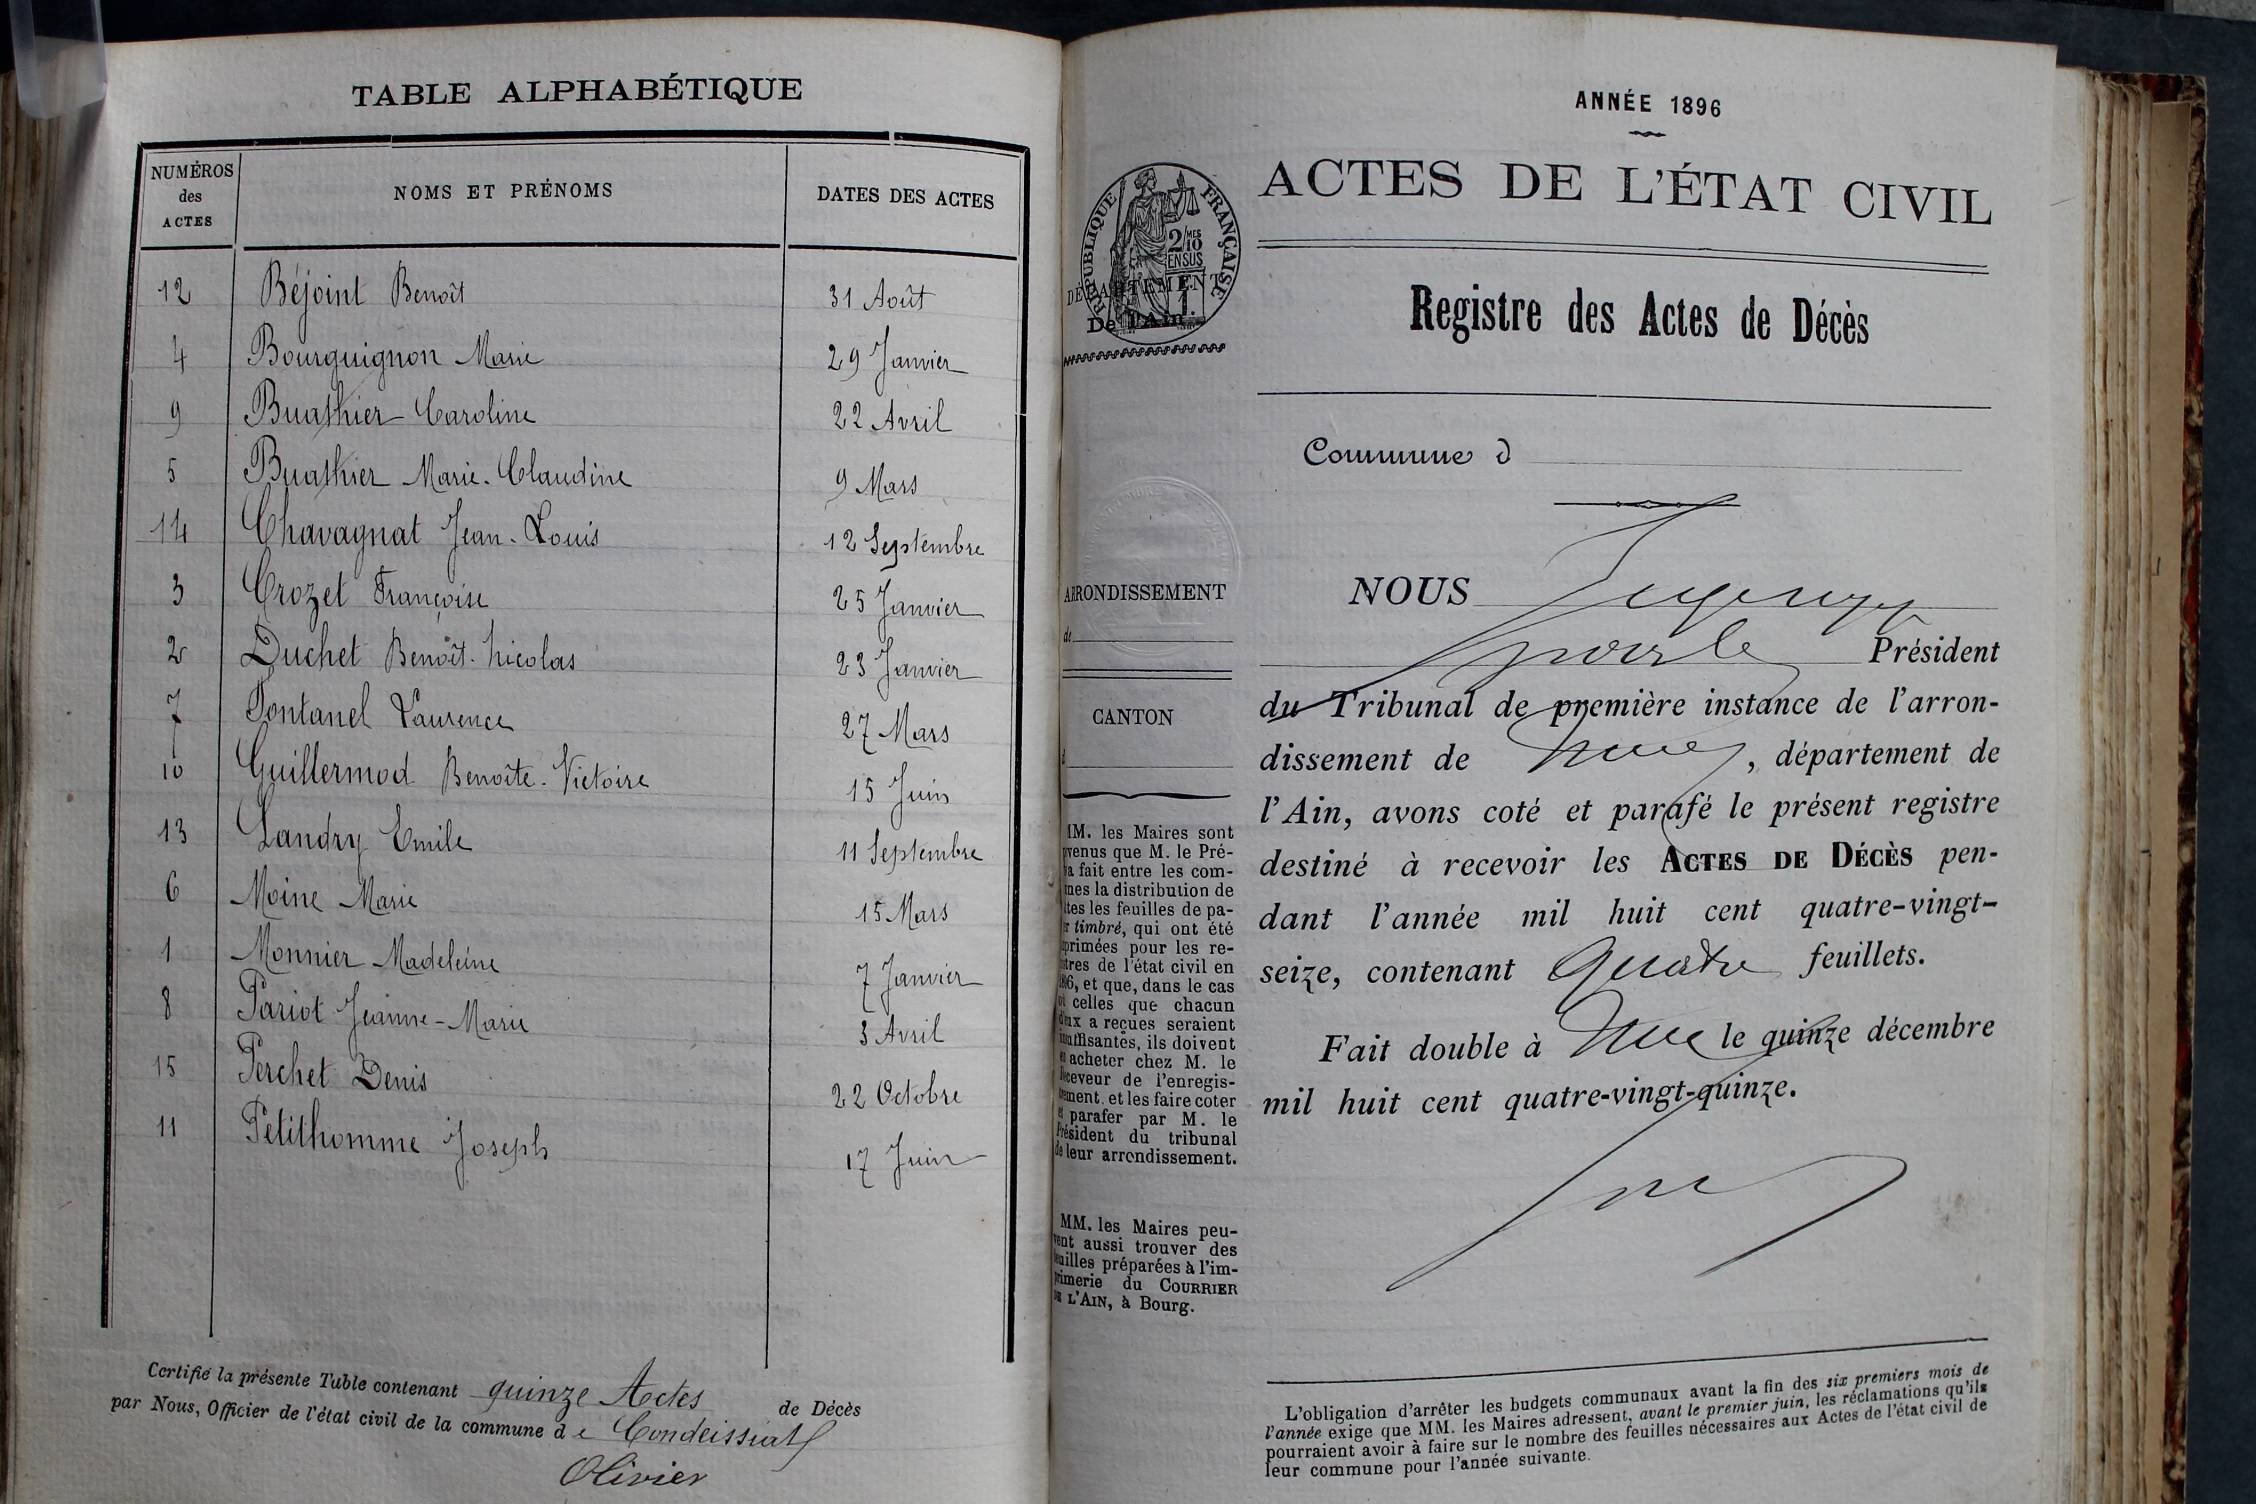 TABLE ALPHABÉTIQUE
NUMÉROS
des
ACTES
NOMS ET PRÉNOMS
DATES DES ACTES
12 Béjoint Benoît 31 Août
4 Bourguignon Marie 29 Janvier
9 Buathier Caroline 22 Avril
5 Buathier Marie-Claudine 9 Mars
14 Chavagnat Jean-Louis 12 Septembre
3 Crozet Françoise 25 Janvier
2 Duchet Benoît-Nicolas 23 Janvier
7 Fontanel Laurence 27 Mars
10 Guillermod Benoîte-Victoire 15 Juin
13 Landry Emile 11 Septembre
6 Moine Marie 15 Mars
1 Monnier Madeleine 7 Janvier
8 Pariot Jeanne-Marie 3 Avril
15 Perchet Denis 22 Octobre
11 Petithomme Joseph 17 Juin
Certifié la présente Table contenant quinze Actes de Décès
par Nous, Officier de l'état civil de la commune de Condeissiat
Olivier
ANNÉE 1896
ACTES DE L'ÉTAT CIVIL
RÉPUBLIQUE FRANÇAISE
2/10 MES
EN SUS
DÉPARTEMENT
De l'Ain.
Registre des Actes de Décès
Commune d
ARRONDISSEMENT
de
CANTON
d
MM. les Maires sont
venus que M. le Pré-
a fait entre les com-
mes la distribution de
tes les feuilles de pa-
r timbré, qui ont été
primées pour les re-
tres de l'état civil en
1896, et que, dans le cas
où celles que chacun
d'eux a reçues seraient
insuffisantes, ils doivent
en acheter chez M. le
Receveur de l'enregis-
trement, et les faire coter
et parafer par M. le
Président du tribunal
de leur arrondissement.
MM. les Maires peu-
vent aussi trouver des
feuilles préparées à l'im-
primerie du COURRIER
DE L'AIN, à Bourg.
NOUS
Président
du Tribunal de première instance de l'arron-
dissement de , département de
l'Ain, avons coté et parafé le présent registre
destiné à recevoir les ACTES DE DÉCÈS pen-
dant l'année mil huit cent quatre-vingt-
seize, contenant Quatre feuillets.
Fait double à le quinze décembre
mil huit cent quatre-vingt-quinze.
L'obligation d'arrêter les budgets communaux avant la fin des six premiers mois de
l'année exige que MM. les Maires adressent, avant le premier juin, les réclamations qu'ils
pourraient avoir à faire sur le nombre des feuilles nécessaires aux Actes de l'état civil de
leur commune pour l'année suivante.